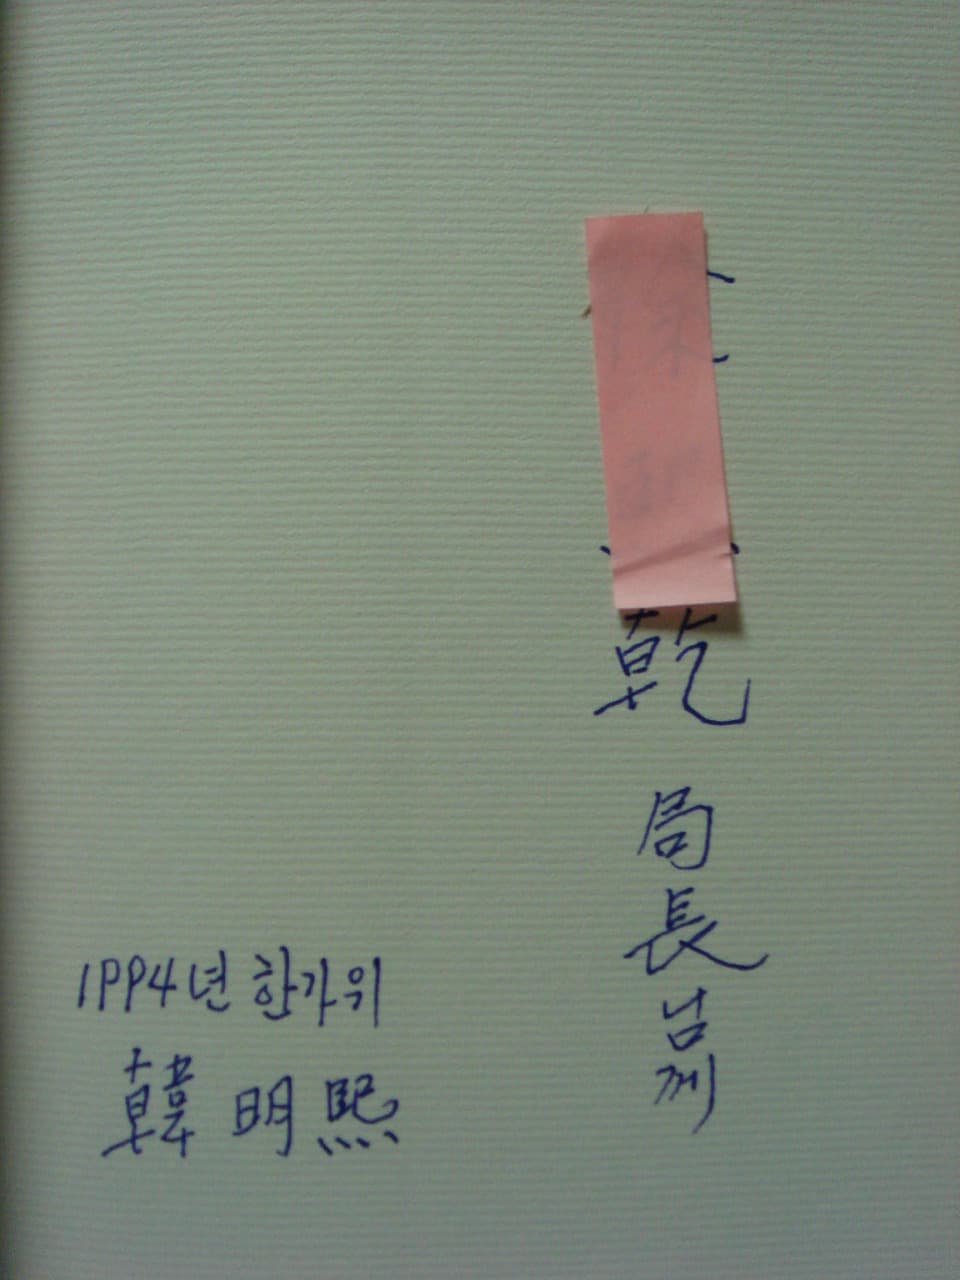 乾 局長님께
1994년 한가위
韓明熙